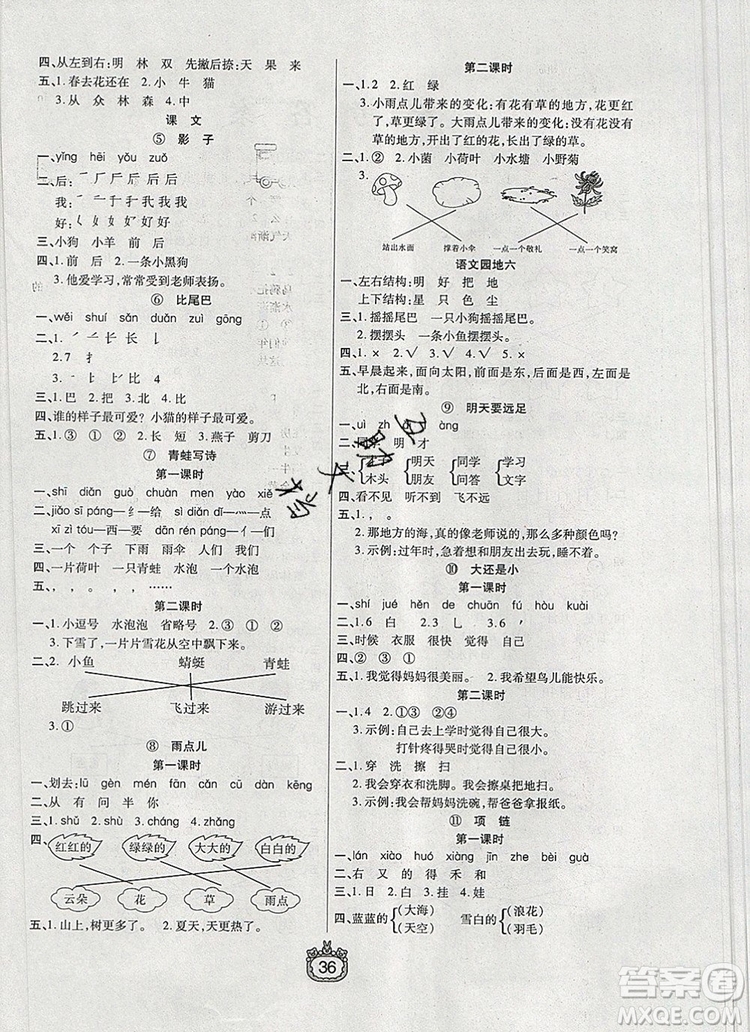 四、从左到右:明 林 双 先撇后捺:天 果 来
五、1.春去花还在 2.小 牛 猫
3.从 众 林 森 4.中
课 文
⑤ 影 子
一、yǐng hēi yǒu zuǒ
二、后:
我:
好:
三、小狗 小羊 前 后
四、1.前 后 2.一条小黑狗
3.他爱学习,常常受到老师表扬。
⑥ 比尾巴
一、wěi shuí sǎn duǎn zuì gōng
二、1.
2.7 扌
3.
三、1.巴 2.把 3.公
四、谁的样子最可爱? 小猫的样子最可爱。
五、1.① ③ ② 2.长 短 3.燕子 剪刀
⑦ 青蛙写诗
第一课时
一、shī diǎn guò chuàn men yào xiě
二、jiǎo sī páng—给 diǎn—点
xī zì tóu—西—要 dān rén páng—们
三、一个 个子 下雨 雨伞 人们 我们
四、一片荷叶 一只青蛙 一个水泡
五、, 。 , 。 ……
第二课时
一、1.小逗号 水泡泡 省略号 2.③ ① ②
3.下雪了,一片片雪花从空中飘下来。
二、2.小鱼 蜻蜓 青蛙
跳过来 飞过来 游过来
3.①
⑧ 雨点儿
第一课时
一、划去:lǔ gèn mén fān cǎn dù dàn kěng
二、从 有 问 半 你
三、1.shǔ 2.bàn 3.cháng 4.cǎi
四、红红的 绿绿的 大大的 白白的
云朵 花 草 雨点
五、1.山上,树更多了。 2.夏天,天更热了。
第二课时
一、1.2 2.红 绿
3.小雨点儿带来的变化:有花有草的地方,花更红了,草更绿了。 大雨点儿带来的变化:没有花没有
草的地方,开出了红花,长出了绿的草。
二、1.① ② 2.小菌 小荷叶 小水塘 小野菊
3.
站出水面 撑着小伞 一点一个敬礼 一点一个笑窝
语文园地六
一、左右结构:明 好 把 地
上下结构:星 只 色 尘
三、1.摇摇尾巴 一只小狗摇摇尾巴。
2.摆摆头 一条小鱼摆摆头。
四、1.× 2.√ 3.√ 4.×
五、早晨起来,面向太阳,前面是东,后面是西,左面是
北,右面是南。
⑨ 明天要远足
木头 明天 朋友 同学 问答 学习 文字
四、看不见 听不到 飞不远
五、1., 。
2.那地方的海,真的像老师说的,那么多种颜色吗?
3.示例:过年时,急着想和朋友出去玩,睡不着。
⑩ 大还是小
第一课时
一、shí jué hěn de chuān fú hòu kuài
二、1.6 2.白 2.3 乚 3.4 丨
三、时候 衣服 很快 觉得 自己
四、② ③ ①
五、1.我觉得妈妈很美丽。 2.我希望鸟儿能快乐。
第二课时
一、1.4 2.①③ ②④
3.示例:自己去上学时觉得自己很大。
打针疼得哭时觉得自己很小。
二、1.穿 洗 擦 扫
2.我会穿衣和洗脚。 我会擦桌把地扫。
3.示例:我会帮妈妈洗碗,帮爸爸拿报纸。
⑪ 项 链
第一课时
一、lán xiào huó xiàng jīn zhe bǎ
二、右 又 的 得 禾 和
三、1.日 2.白 3.挂 4.娃
四、蓝蓝的 (大海) (天空) 雪白的 (浪花) (羽毛)
36
答案圈
MXQE.COM